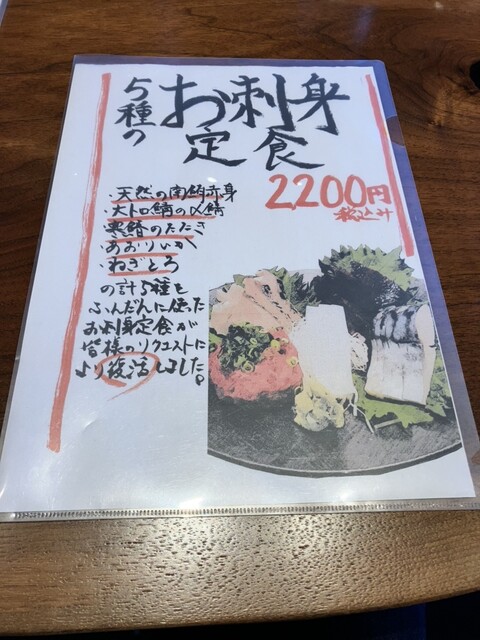 5種の
お刺身
定食
2,200円
税込み
・天然の南鮪赤身
・大トロ鯖の〆鯖
・寒鰆のたたき
・あおりいか
・ねぎとろ
の計5種を
ふんだんに使った
お刺身定食が
皆様のリクエストに
より復活しました。